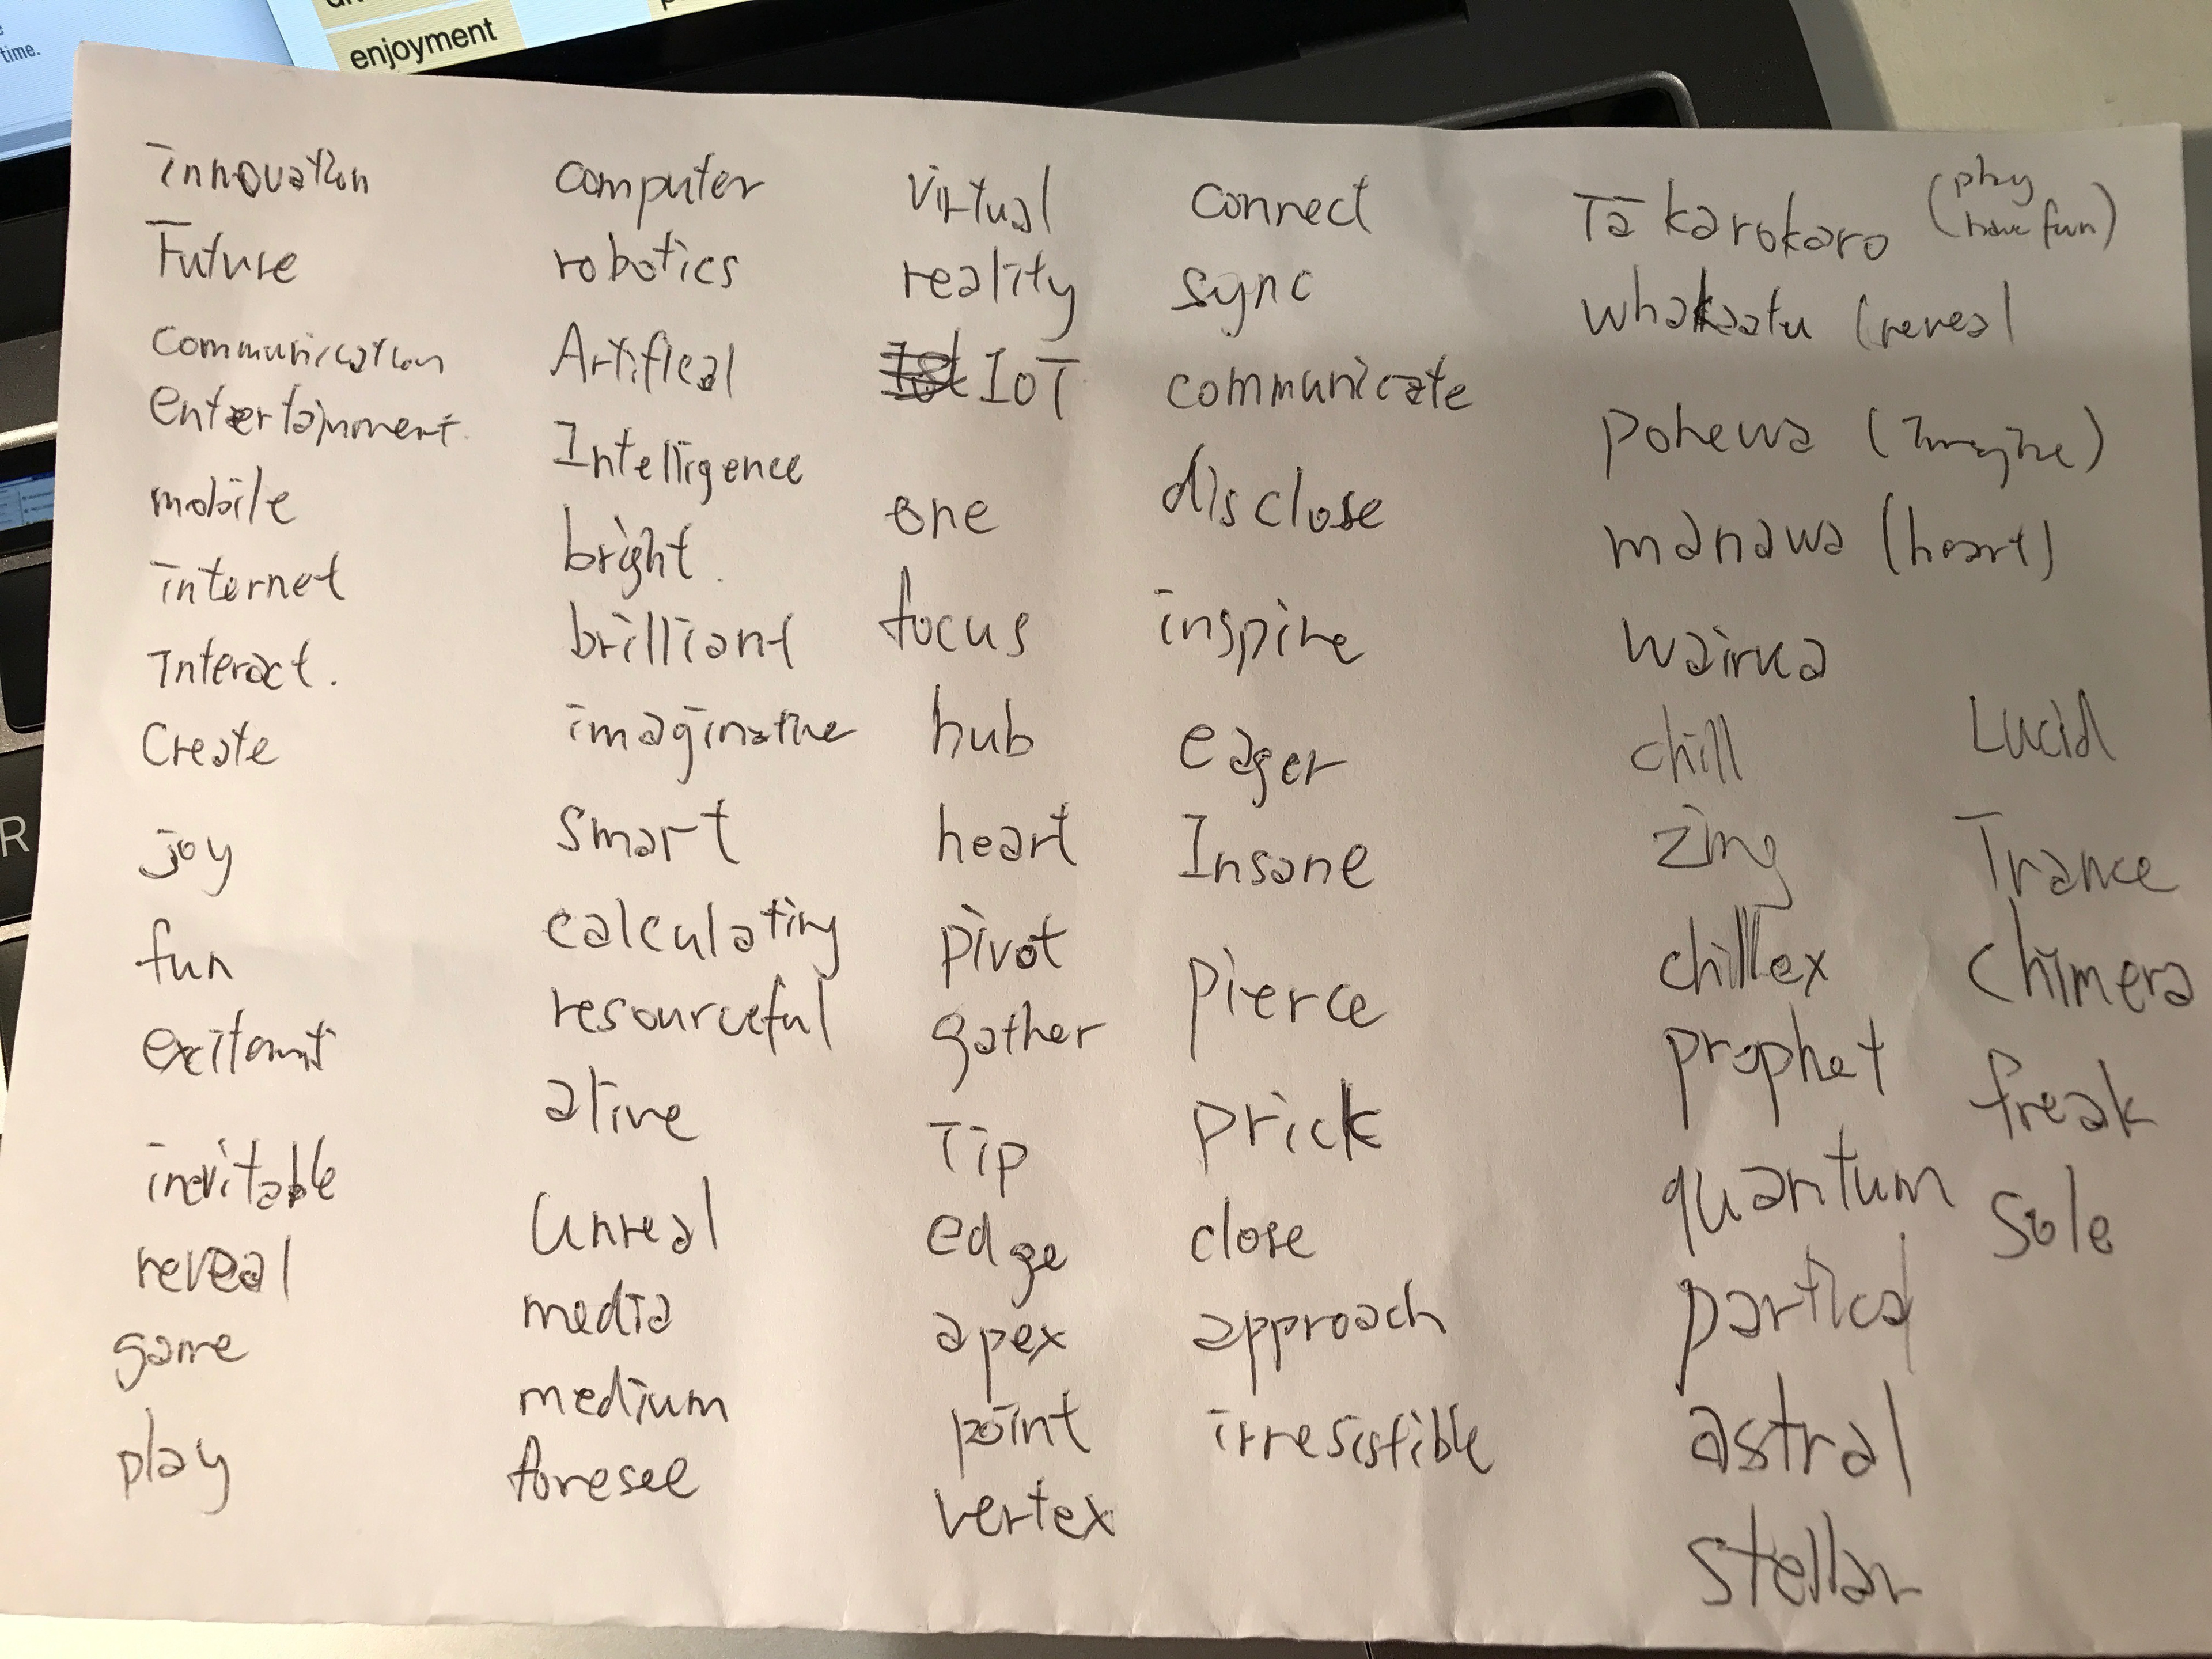 time.
enjoyment
innovation
Future
communication
entertainment.
mobile
internet
Interact.
Create
joy
fun
exitomnt
inevitable
reveal
game
play
computer
robotics
Artifical
Intelligence
bright.
brilliant
imaginative
smart
calculating
resourceful
alive
Unreal
media
medium
foresee
Virtual
reality
IoT
one
focus
hub
heart
pivot
gather
Tip
edge
apex
point
vertex
connect
sync
communicate
disclose
inspire
eager
Insane
pierce
prick
close
approach
irresistible
Tākarokaro (play have fun)
whakaatu (reveal
pohewa (imagine)
manawa (heart)
wairua
chill
zing
chillex
prophet
quantum
partical
astral
stellar
Lucid
Trance
Chimera
freak
Sole
R